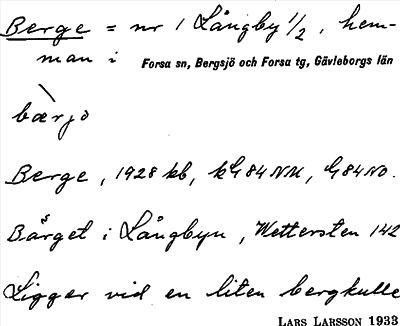 Berge = nr 1 Långby 1/2, hem-
man i Forsa sn, Bergsjö och Forsa tg, Gävleborgs län
bærjo
Berge, 1928 kb, kG84NU, G84NO.
Bärget i Långbyn, Wettersten 142
Ligger vid en liten bergkulle
LARS LARSSON 1933